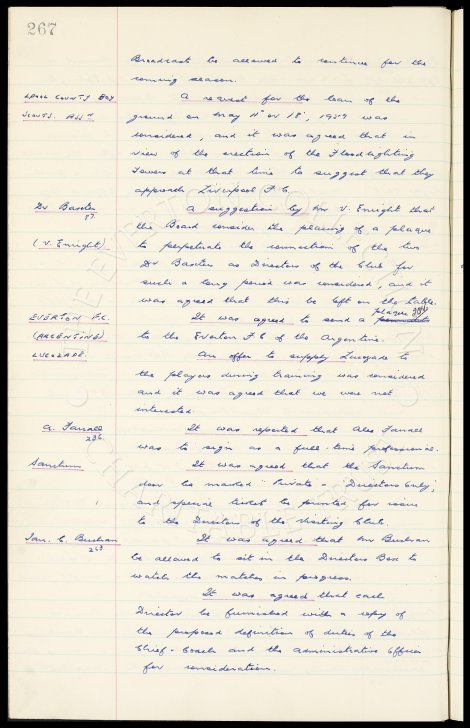 267
Broadcast be allowed to continue for the
coming season.
LPOOL COUNTY BOY
SCOUTS. ASSN
A request for the loan of the
ground on May 11 or 18, 1957 was
considered, and it was agreed that in
view of the erection of the Floodlighting
Towers at that time to suggest that they
approach Liverpool F.C.
Dr Baxter
97.
(V. Enright)
A suggestion by Mr V. Enright that
the Board consider the placing of a plaque
to perpetuate the connection of the two
Dr Baxters as Directors of the Club for
such a long period was considered, and it
was agreed that this be left on the table.
EVERTON F.C.
(ARGENTINE)
It was agreed to send a plaque
to the Everton F.C of the Argentine.
LUCOZADE.
An offer to supply Lucozade to
the players during training was considered
and it was agreed that we were not
interested.
A. Farrall
236.
It was reported that Alec Farrall
was to sign as a full-time professional.
Sanctum
It was agreed that the Sanctum
door be marked "Private - Directors Only,"
and special tickets be printed for issue
to the Directors of the Visiting Club.
C. Buchan
263
It was agreed that Mr Buchan
be allowed to sit in the Directors Box to
watch the matches in progress.
It was agreed that each
Director be furnished with a copy of
the proposed definition of duties of the
Chief-Coach and the Administrative Officer
for consideration.